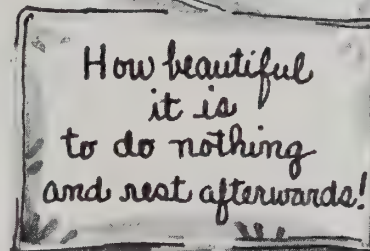 How beautiful
it is
to do nothing
and rest afterwards!